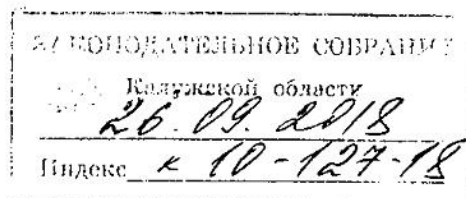 ЗАКОНОДАТЕЛЬНОЕ СОБРАНИЕ
Калужской области
26.09.2018
Индекс к 10-127-18